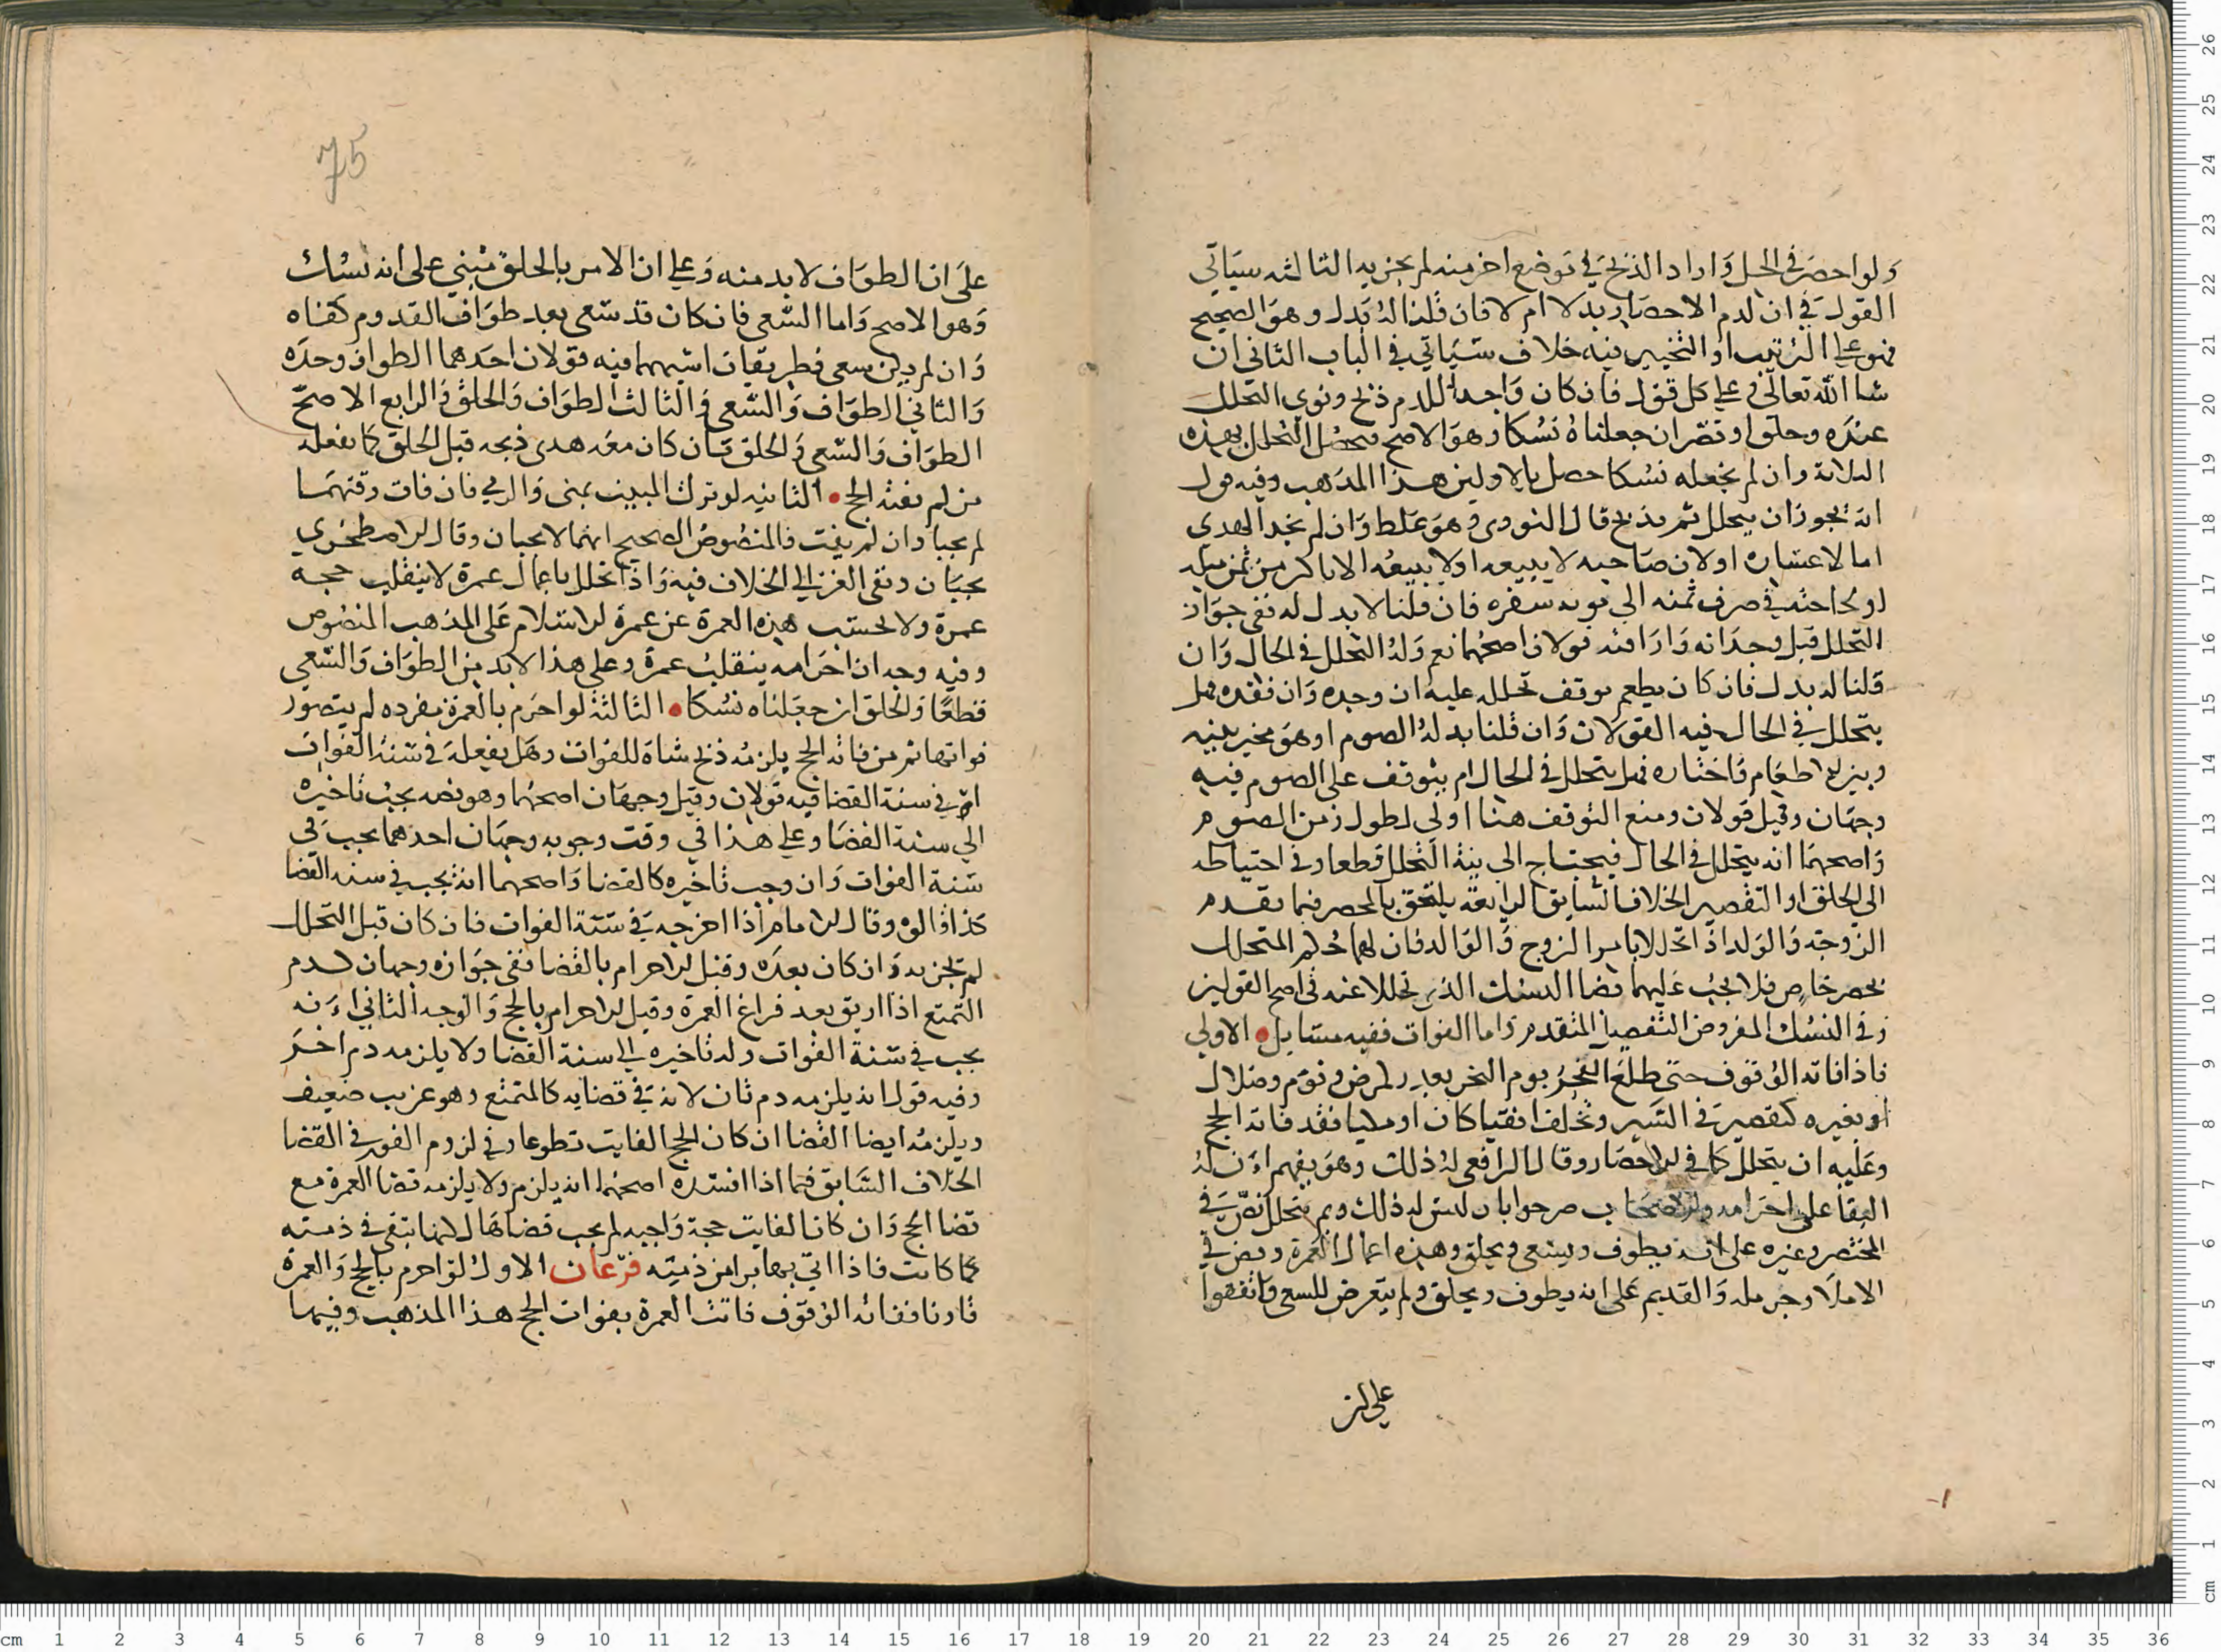 ولو احصر في الحل واراد الذبح في موضع اخر منه لم يجز به الثالثه سياتي
القول في ان لدم الاحصار بدلا ام لا فان قلنا له بدل وهو الصحيح
فهو على الترتيب او التخيير فيه خلاف سياتي في الباب الثاني ان
شا الله تعالى وعلى كل قول فان كان واجدا للدم ذبح ونوى التحلل
عنده وحلق او قصر ان جعلناه نسكا وهو الاصح فيحصل التحلل بهذه
الثلاثة وان لم نجعله نسكا حصل بالاولين هذا المذهب وفيه قول
انه يجوز ان يتحلل ثم يذبح قال النووي وهو غلط وان لم يجد الهدي
اما لاعساره او لان صاحبه لا يبيعه او لا يبيعه الا باكثر من ثمن مثله
او لحاجته في صرف ثمنه الى مونه سفره فان قلنا لا بدل له ففي جواز
التحلل قبل وجدانه واراقته قولان اصحهما نعم وله التحلل في الحال وان
قلنا له بدل فان كان يطعم توقف تحلله عليه ان وجده وان فقده فهل
يتحلل في الحال فيه القولان وان قلنا بدله الصوم او هو مخير بينه
وبين الاطعام فاختاره فهل يتحلل في الحال ام يتوقف على الصوم فيه
وجهان وقيل قولان ومنع التوقف هنا اولى لطول زمن الصوم
واصحهما انه يتحلل في الحال فيحتاج الى نية التحلل قطعا وفي احتياطه
الى الحلق او التقصير الخلاف السابق الرابعة يلتحق بالمحصر فيما تقدم
الزوجة والولد اذا تحللا بامر الزوج والوالد فان لهما حكم المتحلل
بحصر خاص فلا يجب عليهما قضا النسك الذي تحللا عنه في اصح القولين
وفي النسك المفروض التفصيل المتقدم واما الفوات ففيه مسايل الاولى
فاذا فاته الوقوف حتى طلع الفجر يوم النحر بعذر لمرض ونوم وضلال
او بغيره كتقصير في السير وتخلف افقيا كان او مكيا فقد فاته الحج
وعليه ان يتحلل كما في الاحصار وقال الرافعي له ذلك وهو يفهم ان له
البقا على احرامه والاصحاب صرحوا بان ليس له ذلك وبم يتحلل نص في
المختصر وغيره على انه يطوف ويسعى ويحلق وهذه اعمال العمرة ونص في
الاملا وحرمله والقديم على انه يطوف ويحلق ولم يتعرض للسعي واتفقوا
على ان
75
على ان الطواف لا بد منه وعلى ان الامر بالحلق مبني على انه نسك
وهو الاصح واما السعي فان كان قد سعى بعد طواف القدوم كفاه
وان لم يكن سعى فطريقان اشهرهما فيه قولان احدهما الطواف وحده
والثاني الطواف والسعي والثالث الطواف والحلق والرابع الاصح
الطواف والسعي والحلق فان كان معه هدي ذبحه قبل الحلق كما يفعله
من لم يفته الحج الثانيه لو ترك المبيت بمنى والرمي فان فات وقتهما
لم يجبا وان لم يفت فالمنصوص الصحيح انهما لا يجبان وقال الاصطخري
يجبان ونفى الغزالي الخلاف فيه واذا تحلل باعمال عمرة لا ينقلب حجه
عمرة ولا تحسب هذه العمرة عن عمرة الاسلام على المذهب المنصوص
وفيه وجه ان احرامه ينقلب عمرة وعلى هذا لا بد من الطواف والسعي
قطعا والحلق ان جعلناه نسكا الثالثة لو احرم بالعمرة مفرده لم يتصور
فواتها ثم من فاته الحج يلزمه ذبح شاة للفوات وهل يفعله في سنة الفوات
ام في سنة القضا فيه قولان وقيل وجهان اصحهما وهو نصه يجب تاخيره
الى سنة القضا وعلى هذا في وقت وجوبه وجهان احدهما يجب في
سنة الفوات وان وجب تاخيره كالقضا واصحهما انه يجب في سنه القضا
كذا قالوه وقال الامام اذا اخرجه في سنة الفوات فان كان قبل التحلل
لم تجز به وان كان بعده وقبل الاحرام بالقضا ففي جوازه وجهان كدم
التمتع اذا اريق بعد فراغ العمرة وقبل الاحرام بالحج والوجه الثاني انه
يجب في سنة الفوات وله تاخيره الى سنة القضا ولا يلزمه دم اخر
وفيه قول انه يلزمه دم ثان لانه في قضايه كالمتمتع وهو غريب ضعيف
ويلزمه ايضا القضا ان كان الحج الفايت تطوعا وفي لزوم الفور في القضا
الخلاف السابق فيما اذا افسده اصحهما انه يلزم ولا يلزمه قضا العمرة مع
قضا الحج وان كان الفايت حجة واجبه لم يجب قضاها لانها تبقى في ذمته
كما كانت فاذا اتى بها برا من ذمته فرعان الاول لو احرم بالحج والعمرة
قارنا ففاته الوقوف فاتت العمرة بفوات الحج هذا المذهب وفيهما